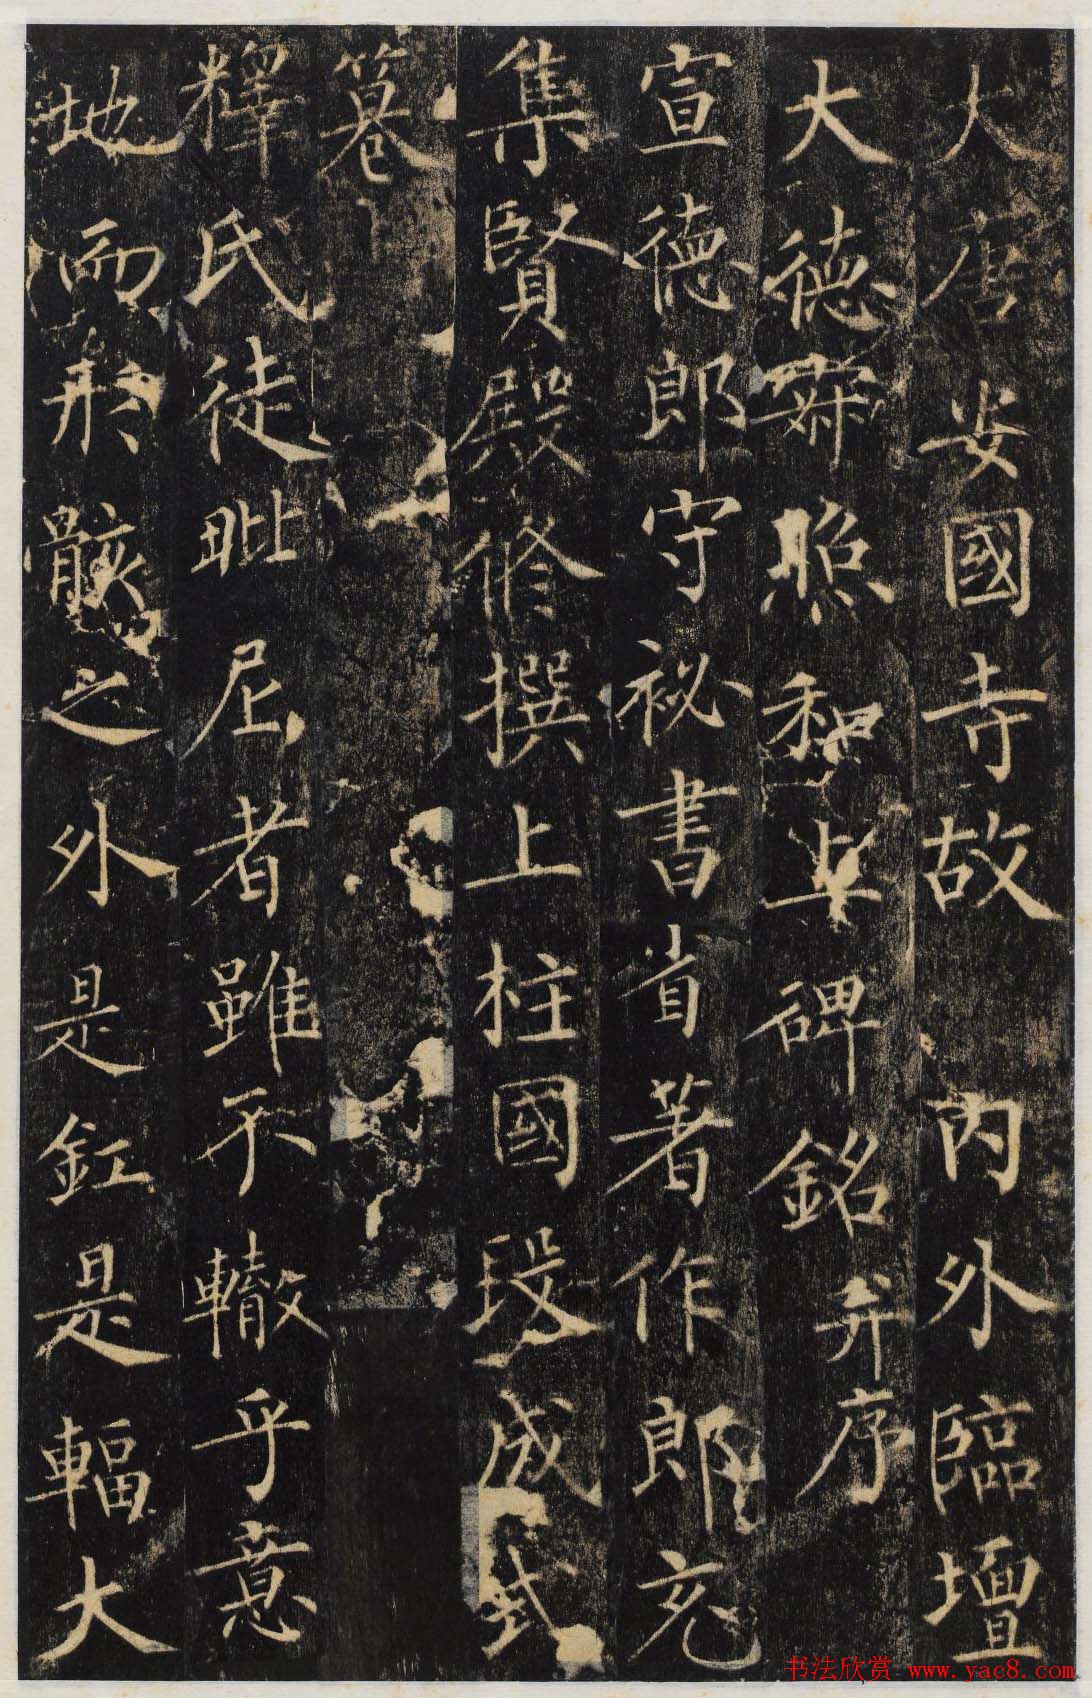 大唐安國寺故內外臨壇
大德寂照和上碑銘并序
宣德郎守祕書省著作郎充
集賢殿修撰上柱國段成式
篡
釋氏徒毗尼者雖不轍乎意
地而形骸之外是釭是輻大
书法欣赏 www.yac8.com